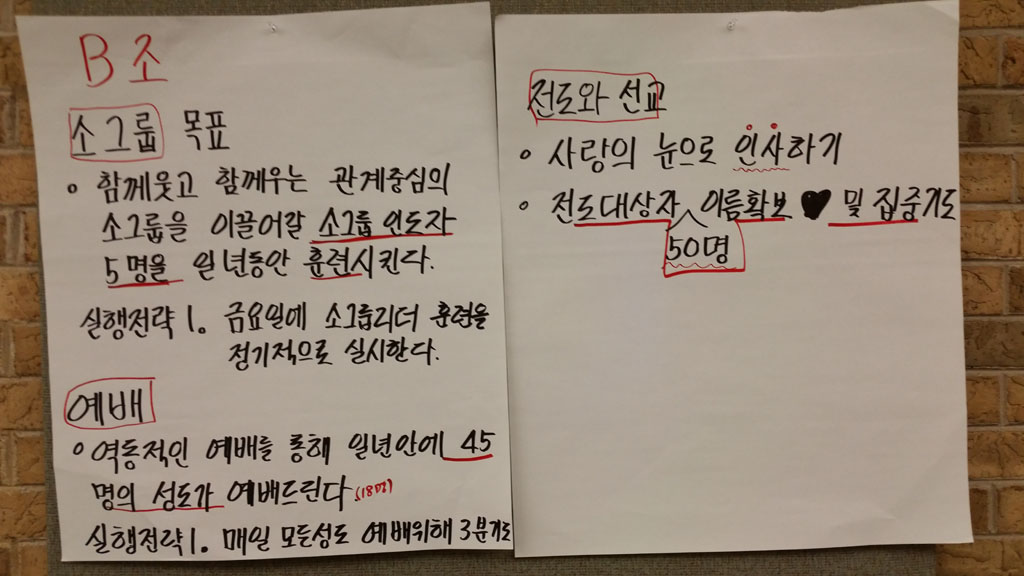 B조
소그룹 목표
• 함께웃고 함께우는 관계중심의
소그룹을 이끌어갈 소그룹 인도자
5명을 일년동안 훈련시킨다.
실행전략 1. 금요일에 소그룹리더 훈련을
정기적으로 실시한다.
예배
• 역동적인 예배를 통해 일년안에 45
명의 성도가 예배드린다.(18명)
실행전략 1. 매일 모든성도 예배위해 3분기도
전도와 선교
• 사랑의 눈으로 인사하기
• 전도대상자 이름확보 ♥ 및 집중기도
50명